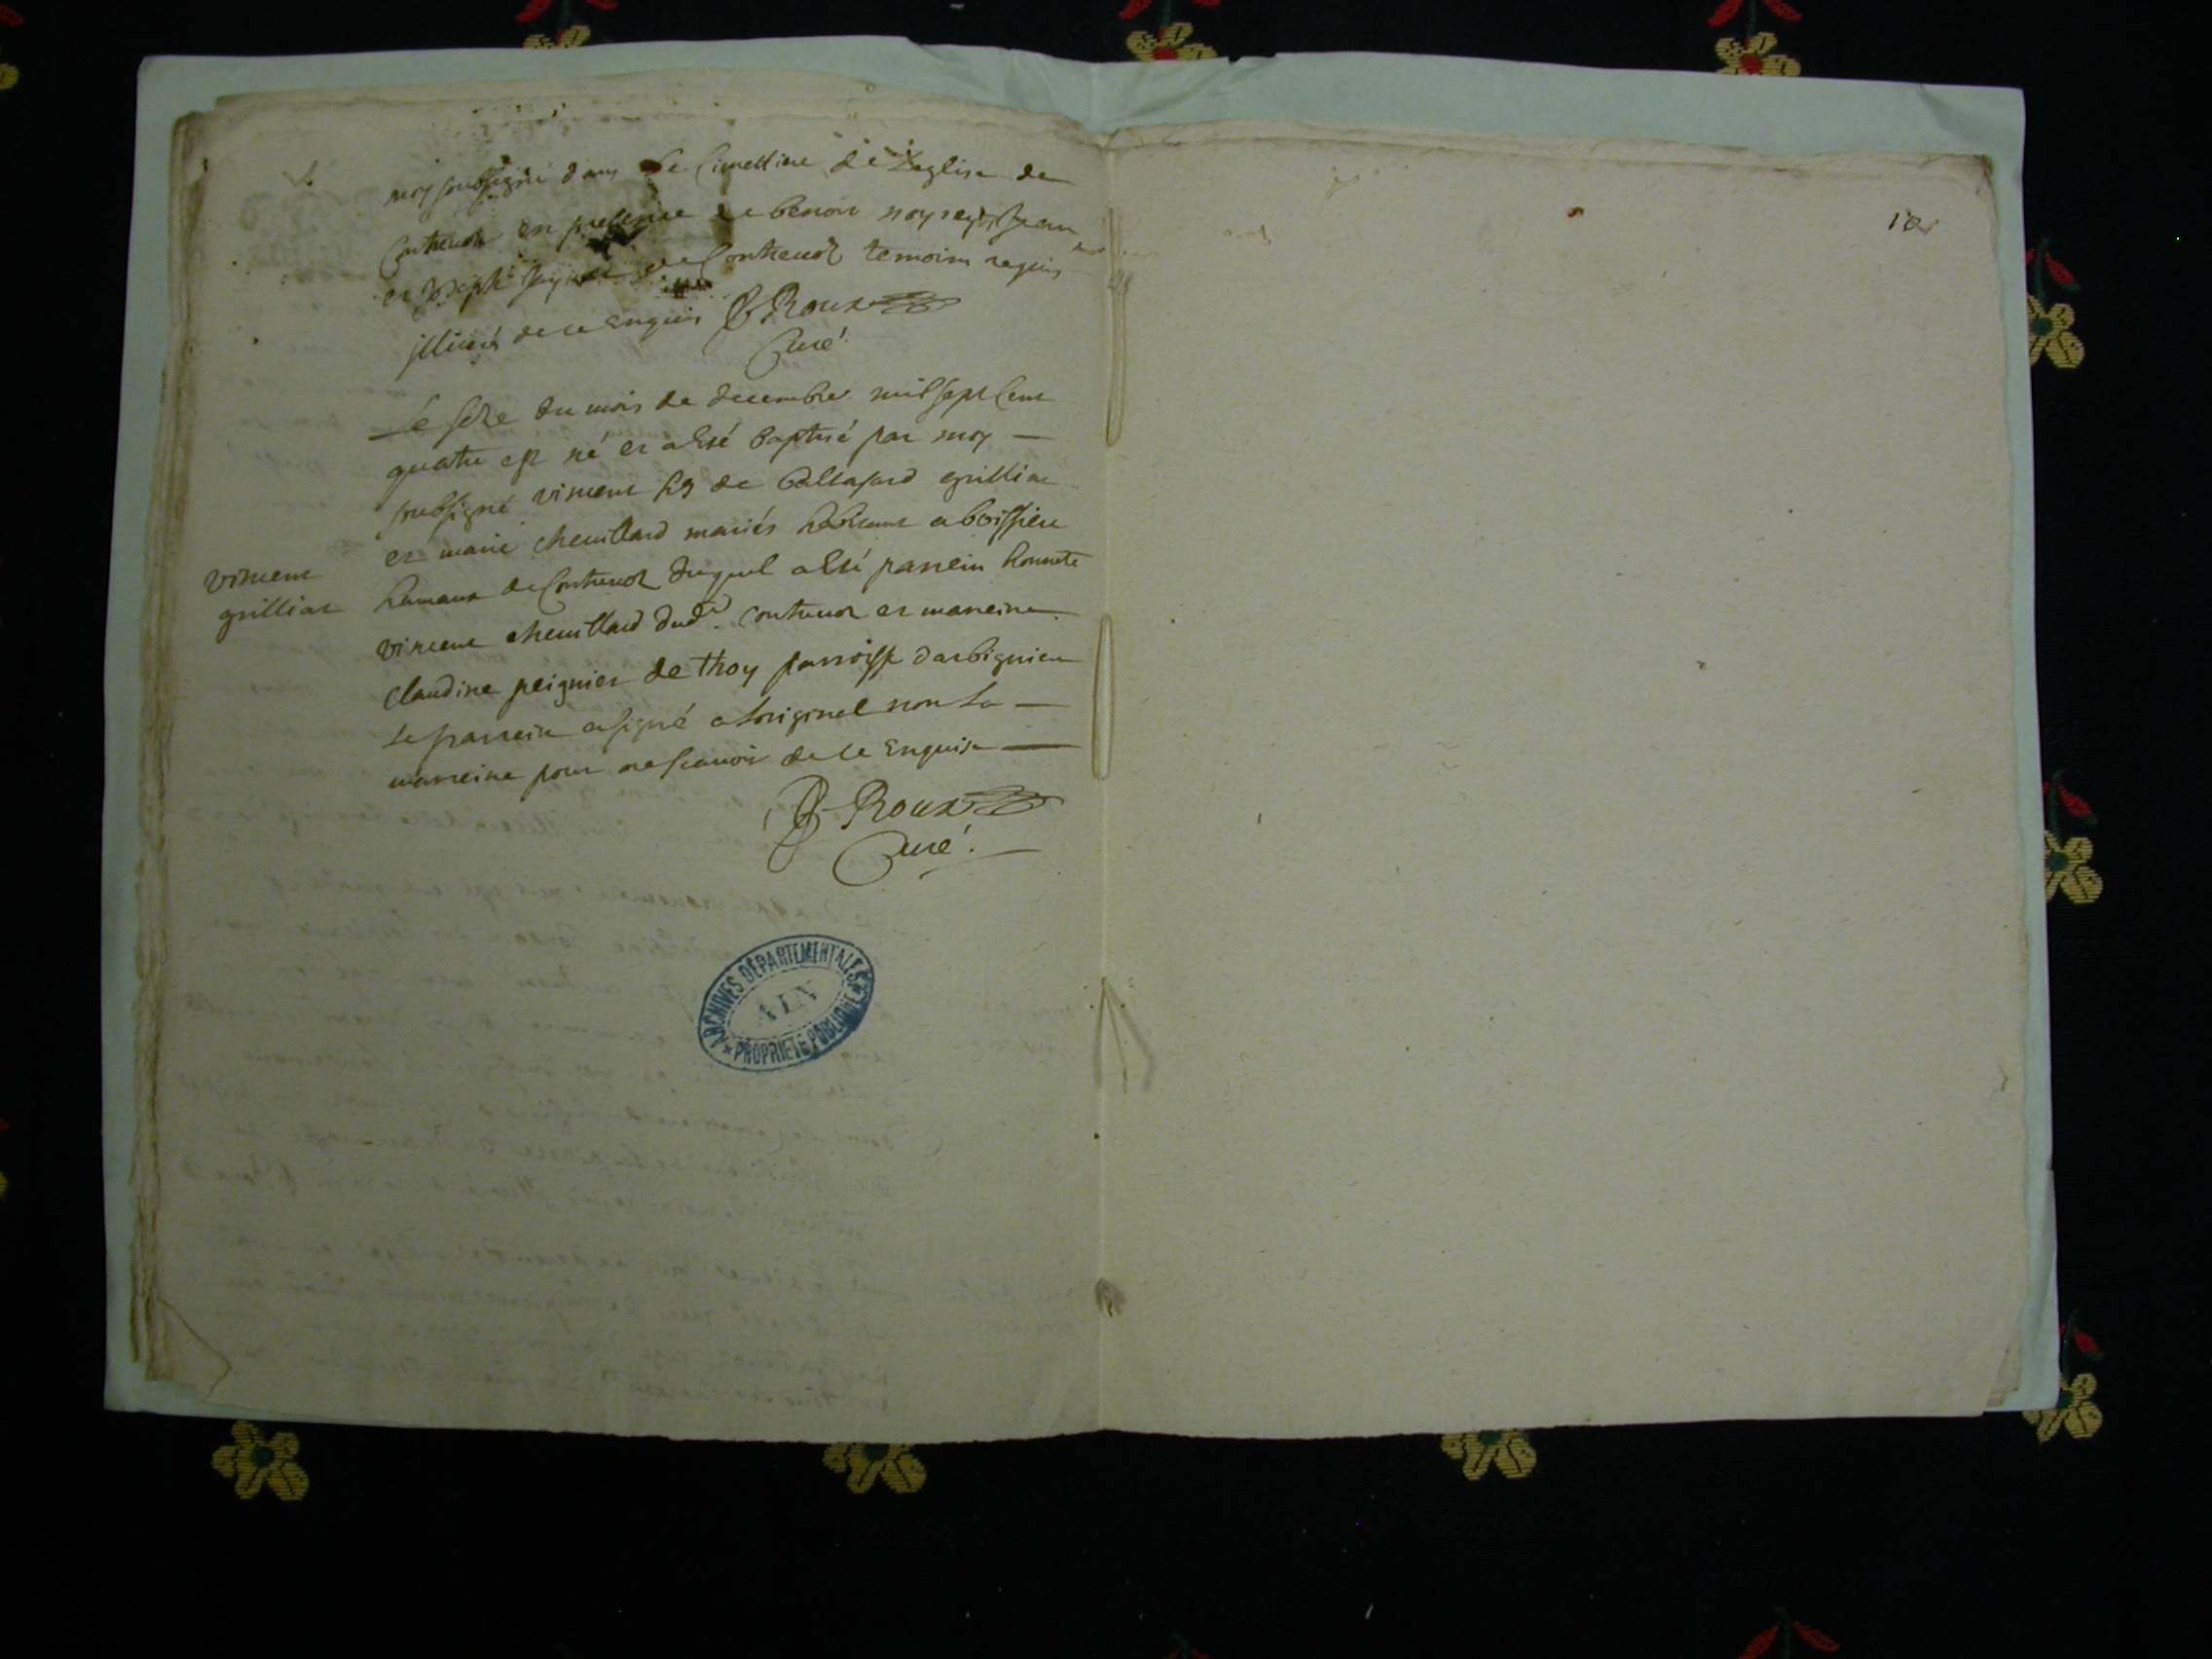 moy soubsigné dans le Cimettiere de Leglise de
Contrevoz en presence de benoit
et Joseph de Contrevoz temoins requis
illiterés de ce Enquis B Roux
Curé
Le seze du mois de decembre mil sept Cent
quatre est né et a esté baptisé par moy —
soubsigné vincent fils de Baltasard grilliat
et marie chevillard mariés habitants a boissieu
hamaux de Contrevoz duquel a esté parrein honnete
vincent chevillard dud. Contrevoz et marreine
Claudine peignier de thoy parroisse darbignieu
Le parrein a signé a Loriginal non La —
marreine pour ne scavoir de ce Enquise —
B Roux
Curé. —
vincent
grilliat
ARCHIVES DÉPARTEMENTALES
AIN
PROPRIÉTÉ PUBLIQUE